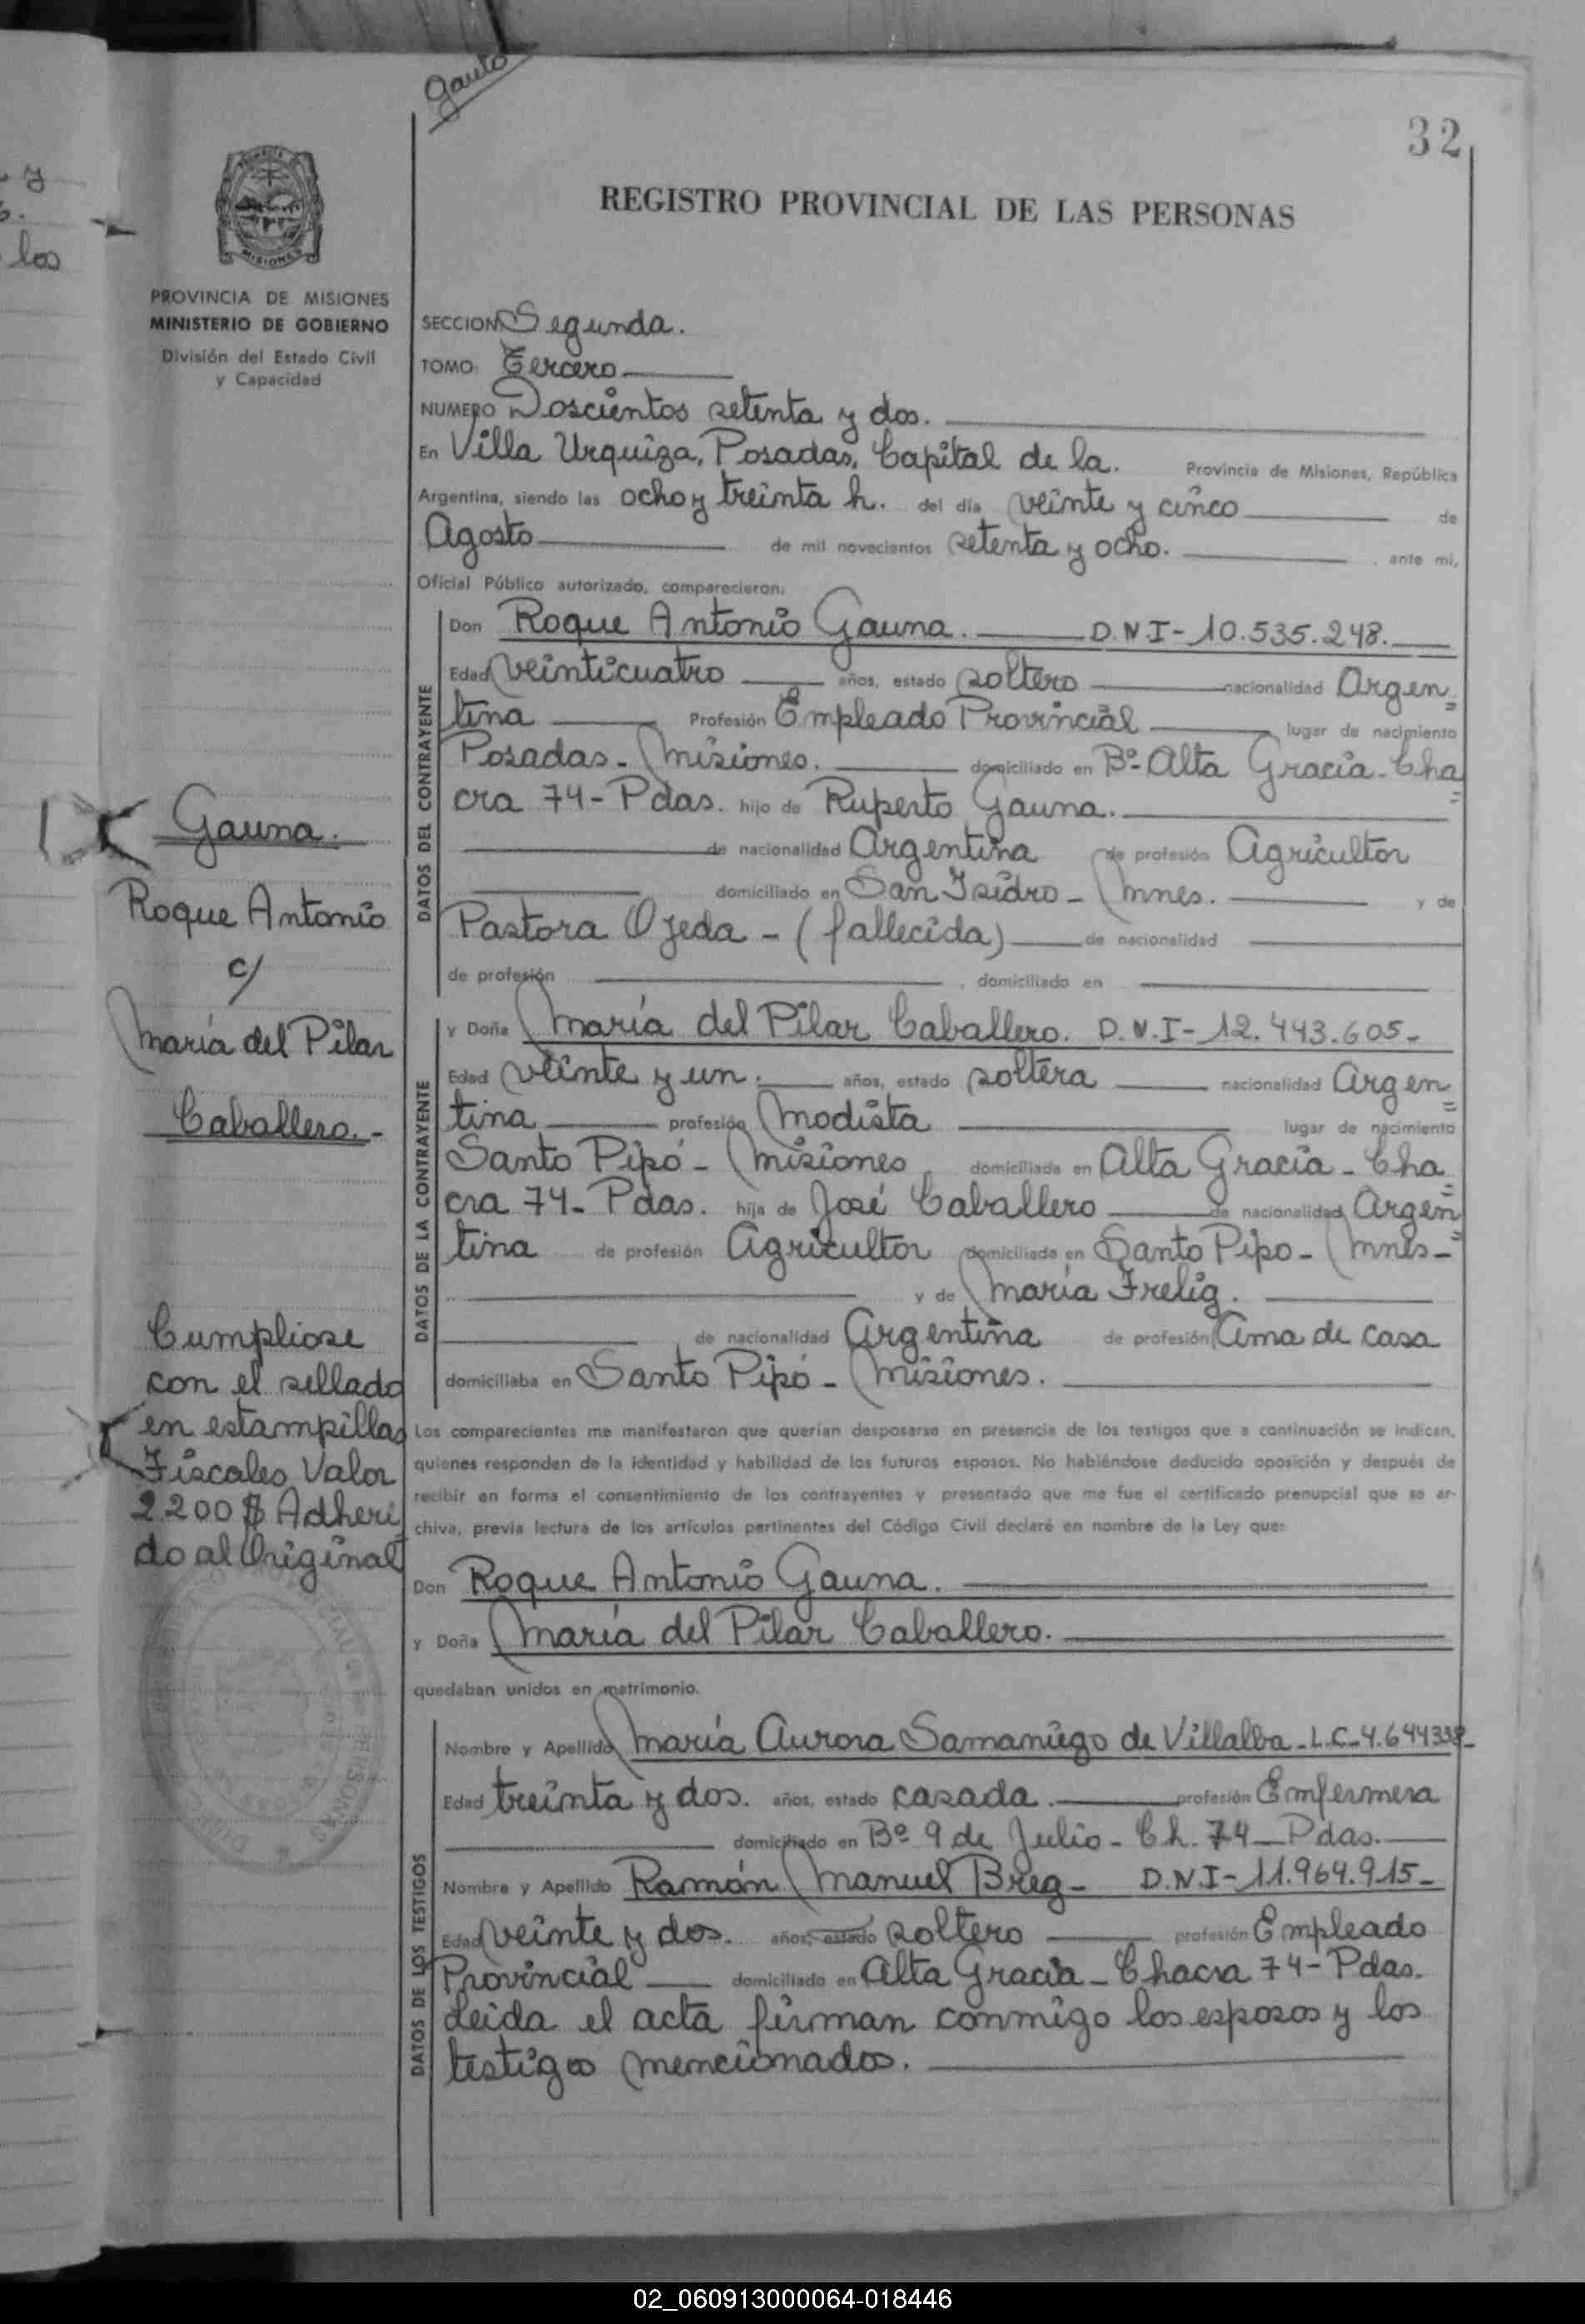 Gauto
32
y
los
MISIONES
REGISTRO PROVINCIAL DE LAS PERSONAS
PROVINCIA DE MISIONES
MINISTERIO DE GOBIERNO
División del Estado Civil
y Capacidad
SECCION Segunda.
TOMO Tercero
NUMERO Doscientos setenta y dos.
En Villa Urquiza, Posadas, Capital de la. Provincia de Misiones, República
Argentina, siendo las ocho y treinta h. del día veinte y cinco de
Agosto de mil novecientos setenta y ocho. , ante mi,
Oficial Público autorizado, comparecieron:
DATOS DEL CONTRAYENTE
Don Roque Antonio Gauna. D.N.I-10.535.248.
Edad veinticuatro años, estado soltero nacionalidad Argen=
tina Profesión Empleado Provincial lugar de nacimiento
Posadas - Misiones. domiciliado en Bº- Alta Gracia - Cha=
cra 74 - Pdas. hijo de Ruperto Gauna.
de nacionalidad Argentina de profesión Agricultor
domiciliado en San Isidro - Mnes. y de
Pastora Ojeda - (fallecida) de nacionalidad
de profesión , domiciliado en
DATOS DE LA CONTRAYENTE
y Doña María del Pilar Caballero. D.N.I-12.443.605-
Edad veinte y un. años, estado soltera nacionalidad Argen=
tina profesión Modista lugar de nacimiento
Santo Pipó - Misiones. domiciliada en Alta Gracia - Cha=
cra 74 - Pdas. hija de José Caballero de nacionalidad Argen=
tina de profesión Agricultor domiciliado en Santo Pipo - Mnes-
y de María Frelig.
de nacionalidad Argentina de profesión Ama de casa
domiciliaba en Santo Pipó - Misiones.
Los comparecientes me manifestaron que querían desposarse en presencia de los testigos que a continuación se indican,
quienes responden de la identidad y habilidad de los futuros esposos. No habiéndose deducido oposición y después de
recibir en forma el consentimiento de los contrayentes y presentado que me fue el certificado prenupcial que se ar-
chiva, previa lectura de los artículos pertinentes del Código Civil declaré en nombre de la Ley que:
Don Roque Antonio Gauna.
y Doña María del Pilar Caballero.
quedaban unidos en matrimonio.
DATOS DE LOS TESTIGOS
Nombre y Apellido María Aurora Samaniego de Villalba - L.C-4.644338-
Edad treinta y dos. años, estado casada. profesión Enfermera
domiciliado en Bº 9 de Julio - Ch. 74 - Pdas.
Nombre y Apellido Ramón Manuel Breg - D.N.I-11.964.915-
Edad veinte y dos. años, estado soltero profesión Empleado
Provincial domiciliado en Alta Gracia - Chacra 74 - Pdas.
Leida el acta firman conmigo los esposos y los
testigos mencionados.
Gauna.
Roque Antonio
c/
María del Pilar
Caballero.-
Cumpliose
con el sellado
en estampillas
Fiscales Valor
2.200 $ Adheri
do al Original
02_060913000064-018446